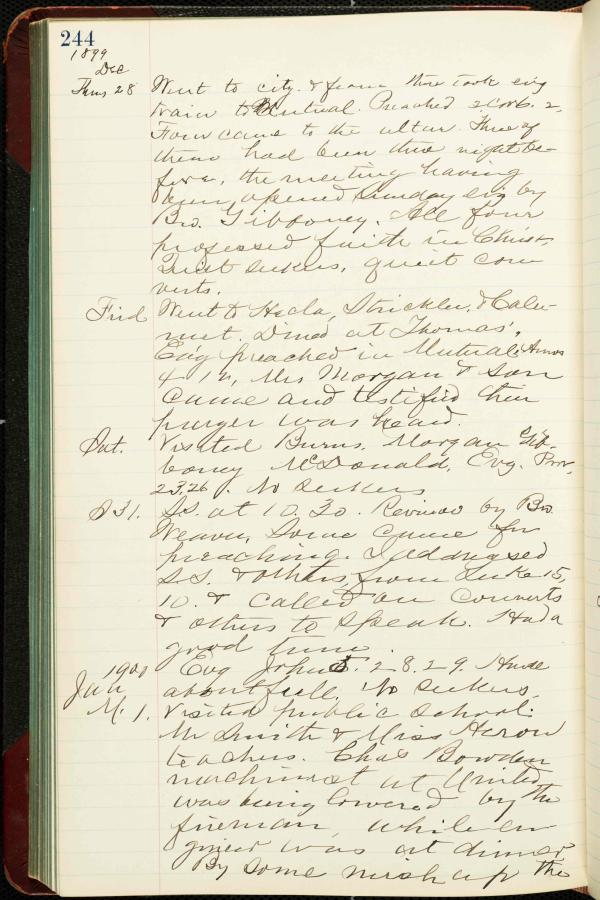 244
1899
Dec
Thurs 28 Went to city & from there took evg
train to Mutual. Preached 2 Cor 6. 2.
Four came to the altar. Three of
them had been there night be-
fore, the meeting having
been opened Sunday evg by
Bro. Gibboney. All four
professed faith in Christ.
Quiet seekers, quiet con
verts.
Frid Went to Hecla, Strickler, & Calu-
met. Dined at Thomas'.
Evg preached in Mutual. Amos
4-12, Mrs Morgan & son
came and testified their
prayer was heard.
Sat. Visited Burns, Morgan Gib-
boney McDonald. Evg. Prov.
23.26. No seekers
S 31. S.S. at 10.30. Review by Bro.
Weaver, Some came for
preaching. I addressed
S.S. & others, from Luke 15,
10. & called on converts
& others to speak. Had a
good time.
Evg John 5. 28.29. House
1900
Jan about full, No seekers.
M. 1. Visited public school.
Mr Smith & Miss Heron
teachers. Chas Bowden
machinist at United
was being lowered by the
fireman, while en
gineer was at dinner
By some mishap the